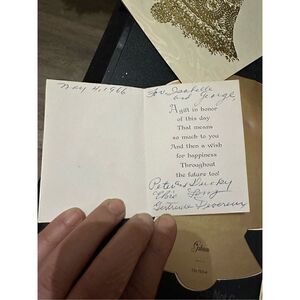 May 4, 1966
For Isabelle
and George,
A gift in honor
of this day
That means
so much to you
And then a wish
for happiness
Throughout
the future too!
Peter and
Elsie
Gertrude Devereux